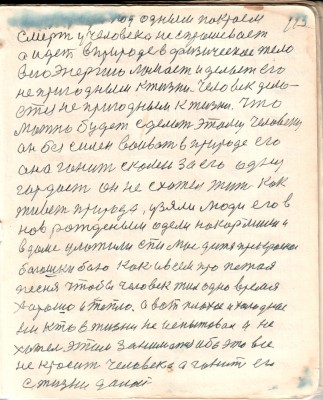 под одним покроем 113
смерть у человека не спрашивает
а идет в природе в физическое тело
его энергию ломает и делает его
не пригодным к жизни. Человек дела-
ется не пригодным к жизни. Что
можно будет сделать этому человеку
он без силен воевать в природе его
она гонит с колеи за его одну
гордость он не схотел жить как
живет природа, узяли люди его в
нов рожденым одели накормили и
в доме уложили спи мое дитя прекрасное
баюшки баю как и всем про петая
песня чтобы человек жил одно время
хорошо и тепло. а вот плохое и холодное
ни кто в жизни не испытовал и не
хотел этим заниматся ибо это все
не красит человека а гонит его
с жизни далой